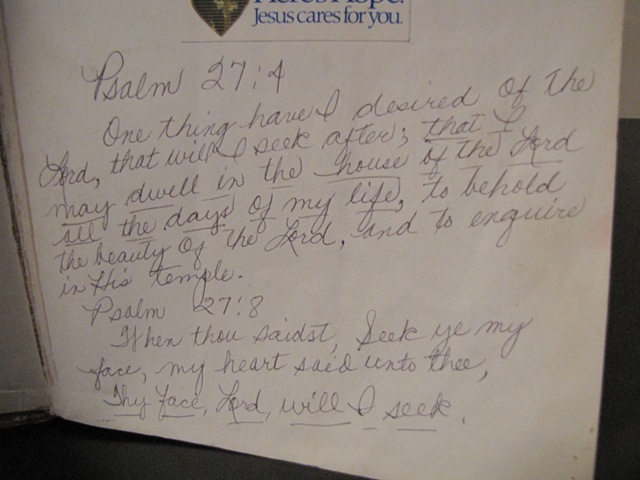 Here's Hope.
Jesus cares for you.
Psalm 27:4
One thing have I desired of the
Lord, that will I seek after; that I
may dwell in the house of the Lord
all the days of my life, to behold
the beauty of the Lord, and to enquire
in His temple.
Psalm 27:8
When thou saidst, Seek ye my
face, my heart said unto thee,
Thy face, Lord, will I seek.